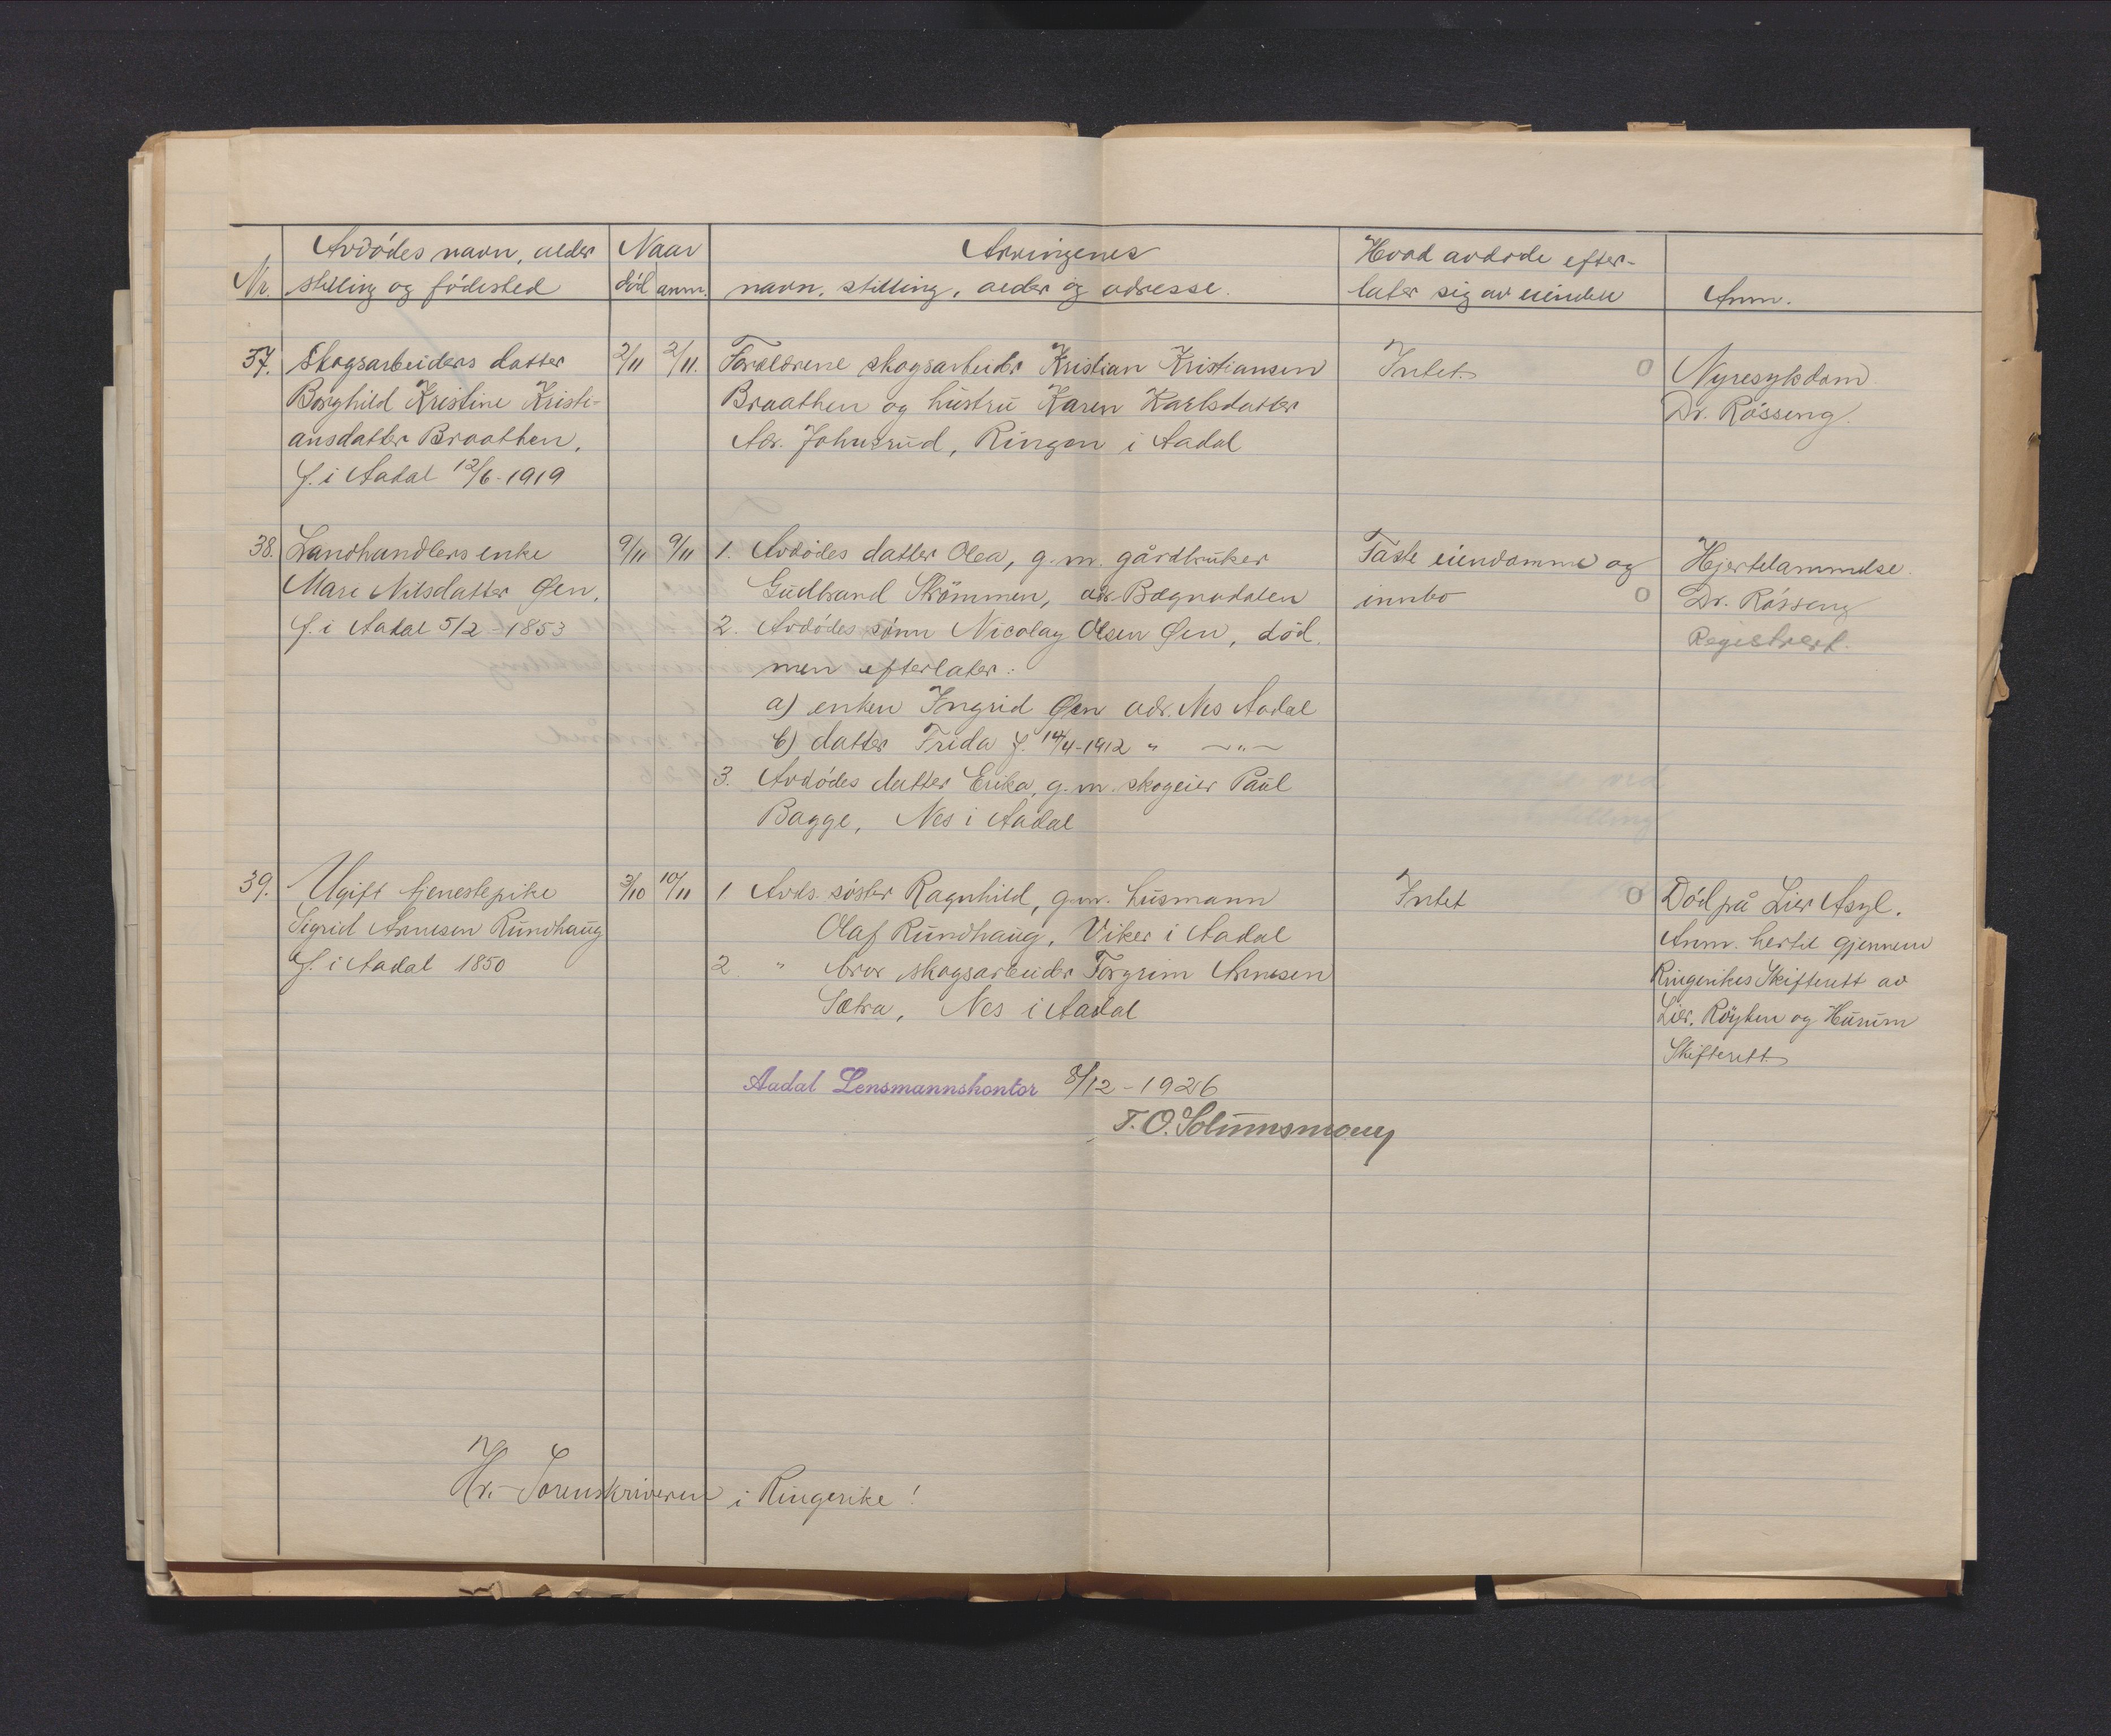 Nr.
Avdødes navn, alder
stilling og fødested
Naar
død anm.
Arvingenes
navn, stilling, alder og adresse.
Hvad avdøde efter-
later sig av eiendele
Anm.
37.
Skogsarbeiders datter
Borghild Kristine Kristi-
ansdatter Braathen,
f. i Aadal 12/6-1919
2/11 2/11.
Forældrene skogsarbeider Kristian Kristiansen
Braathen og hustru Karen Karlsdatter
Adr. Johnsrud, Ringmon i Aadal
Intet. 0
Nyresykdom
Dr. Røsseng.
38.
Landhandlers enke
Mari Nilsdatter Øen,
f. i Aadal 5/2-1853
9/11 9/11
1. Avdødes datter Olea, g.m. gårdbruker
Gudbrand Strømmen, adr. Bægnadalen
2. Avdødes sønn Nicolay Olsen Øen, død.
men efterlater:
a) enken Ingrid Øen adr. Nes Aadal
b) datter Frida f. 14/4-1912 " —"—
3. Avdødes datter Erika, g.m. skogeier Paul
Bagge, Nes i Aadal
Faste eiendomme og
innbo 0
Hjertelammelse.
Dr. Røsseng
Registrert.
39.
Ugift tjenestepike
Sigrid Arnesen Rundhaug
f. i Aadal 1850
3/10 10/11
1 Avds. søster Ragnhild, g.m. husmann
Olaf Rundhaug, Viker i Aadal
2. " bror skogsarbeider Torgrim Arnesen
Sætra, Nes i Aadal
Intet 0
Død på Lier Asyl.
Anm. hertil gjennem
Ringerikes Skifterett av
Lier, Røyken og Hurum
Skifterett.
Aadal Lensmannskontor 8/12-1926
Hr. Sorenskriveren i Ringerike!